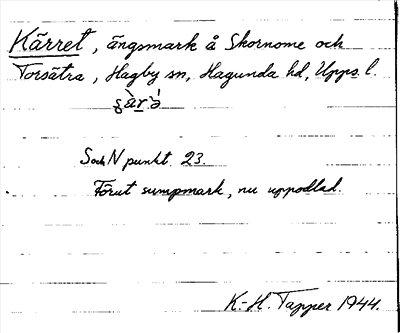 Kärret, ängsmark å Skornome och
Torsätra, Hagby sn, Hagunda hd, Upps. l.
S och N punkt 23.
Förut sumpmark, nu uppodlad.
K.-H. Tapper 1944.